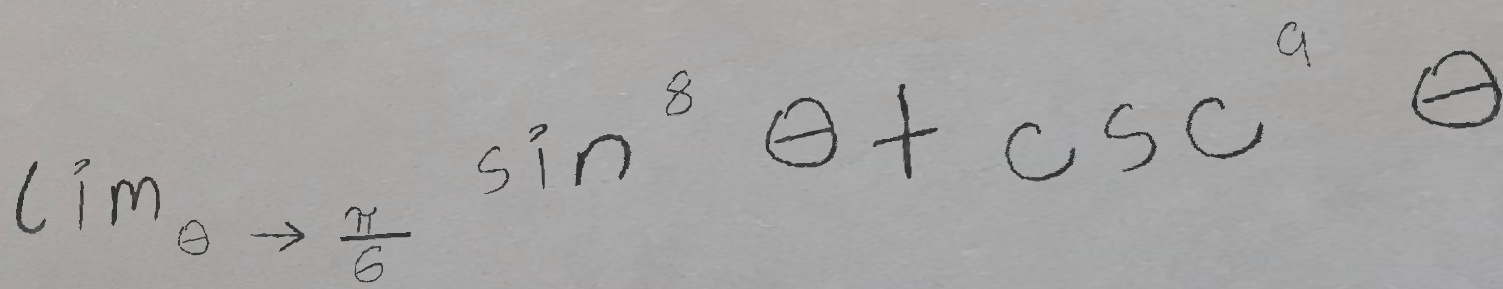 lim θ → π/6 sin^8 θ + csc^9 θ